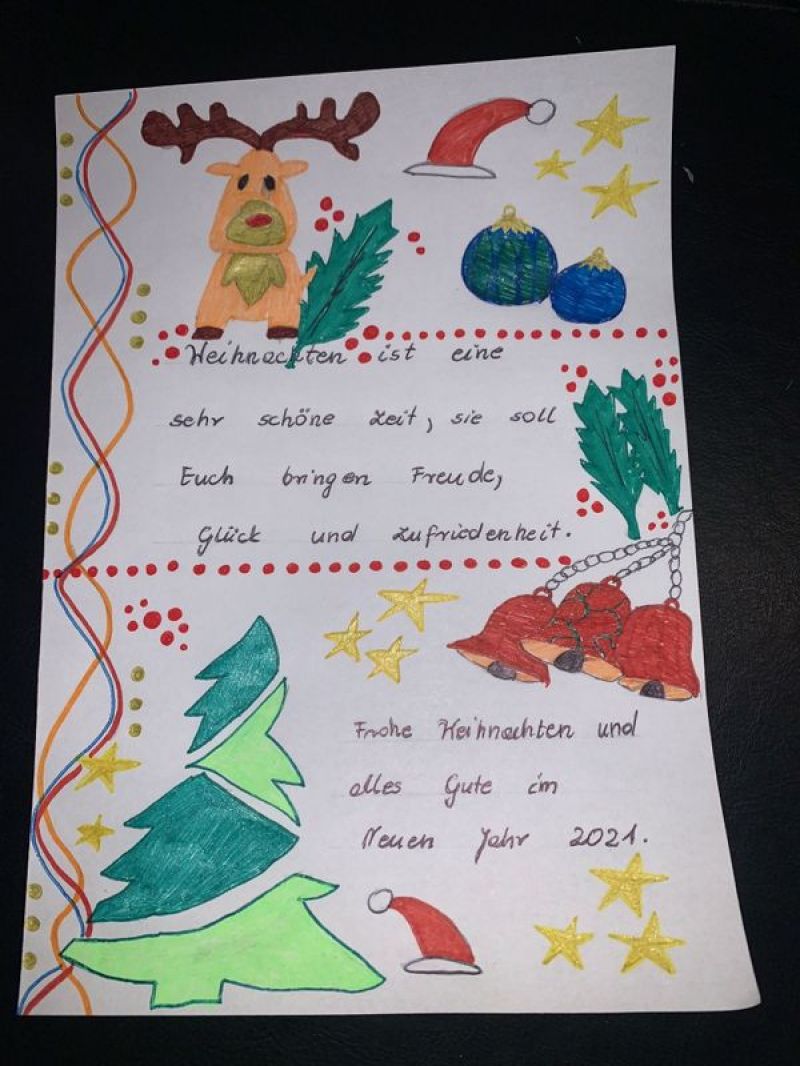 Weihnachten ist eine
sehr schöne Zeit, sie soll
Euch bringen Freude,
Glück und Zufriedenheit.
Frohe Weihnachten und
alles Gute im
Neuen Jahr 2021.